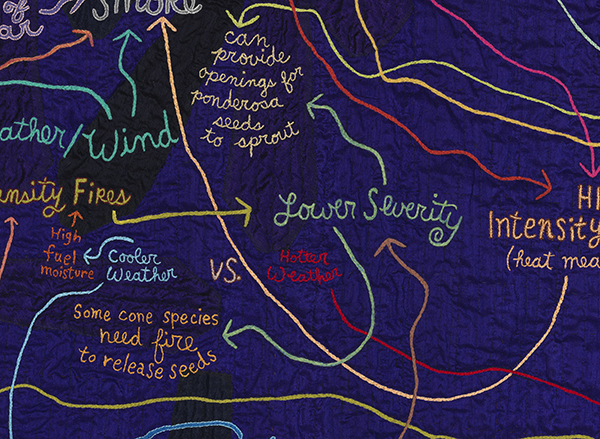 of /Smoke
ar
can
provide
openings for
ponderosa
seeds
to sprout
ather/Wind
nsity Fires
High
fuel
moisture
Cooler
Weather
VS.
Hotter
Weather
Lower Severity
HI
Intensity
(heat mea
Some cone species
need fire
to release seeds